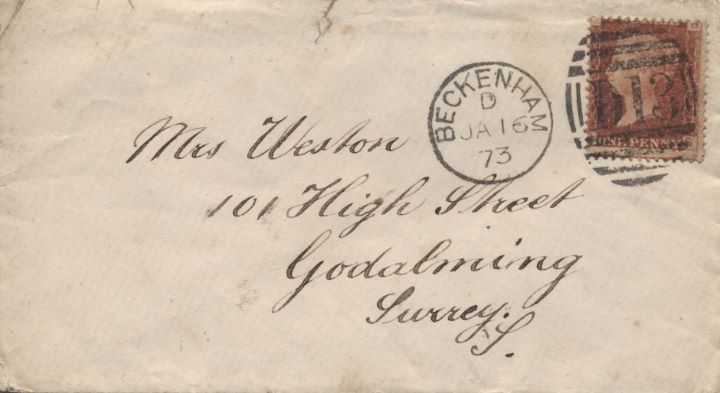 BECKENHAM
D
JA 16
73
D13
ONE PENNY
Mrs Weston
101 High Street
Godalming
Surrey.
S.